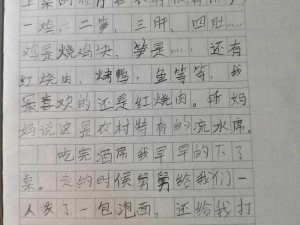 一鸡，二笋，三肝，四肚……
鸡是烧鸡块，笋是……还有
红烧肉，烤鸭，鱼等等，我
最喜欢的还是红烧肉。听妈
妈说这是农村特有的流水席。
吃完酒席我早早的下了
桌。走的时候舅舅给我们一
人发了一包泡面，还给我打